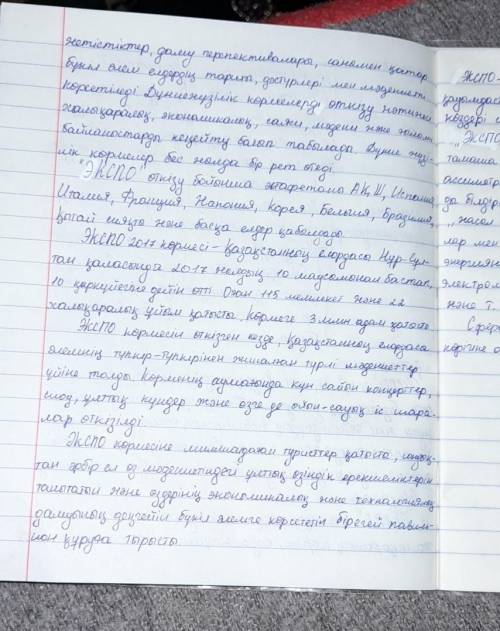 жетістіктер, даму перспективалары, сонымен қатар
бүкіл әлем елдердің тарихы, дәстүрлері мен мәдениеті
көрсетіледі Дүниежүзілік көрмелерді өткізу нәтижесі
халықаралық, экономикалық, саяси, мәдени және ғылыми
байланостарды кеңейту болып табылады. Дүние жүзі-
лік көрмелер бес жылда бір рет өтеді
"ЭКСПО" өткізу бойынша эстафетаны АҚШ, Испания,
Италия, Франция, Жапония, Корея, Бельгия, Бразилия,
Қытай сияқты және басқа елдер қабылдады
ЭКСПО 2017 көрмесі - Қазақстанның елордасы Нұр-Сұл-
тан қаласында 2017 жылдың 10 маусымынан бастап,
10 қыркүйегіне дейін өтті. Оған 115 мемлекет және 22
халықаралық ұйым қатысты. Көрмеге 3 млн адам қатысты
ЭКСПО көрмесін өткізген кезде, Қазақстанның елордасы
әлемнің түпкір-түпкірінен жиналған түрлі мәдениеттер
үйіне толды. Көрменің аумағында күн сайын концерттер,
шоу, ұлттық күндер және өзге де ойын-сауық іс шара-
лар өткізілді.
ЭКСПО көрмесіне миллиондаған туристтер қатысты, сондық-
тан әрбір ел өз мәдениетіндегі ұлттық өзіндік ерекшеліктерін
танытатын және өздерінің экономикалық және технологиялық
дамуының деңгейін бүкіл әлемге көрсететін бірегей павиль-
ион құруға тырысты.
ЭКСПО-
"ЭКСПО
ассиметр
да білдірі
лар мен
энергияны
электром
және т.
Сфера